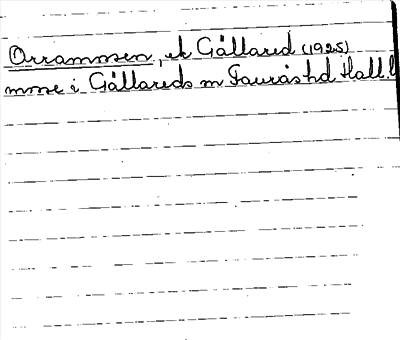 Orrammsen, ek Gällared (1925)
mme i Gällareds sn Fauråshd Hall.l